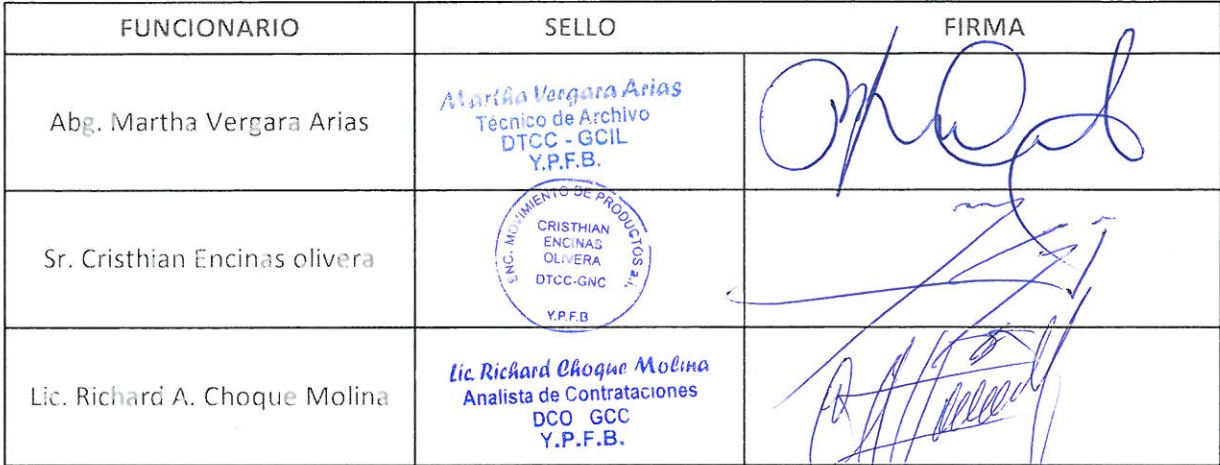 FUNCIONARIO SELLO FIRMA
Abg. Martha Vergara Arias
Martha Vergara Arias
Técnico de Archivo
DTCC - GCIL
Y.P.F.B.
Sr. Cristhian Encinas olivera
ENC. MOVIMIENTO DE PRODUCTOS a.i.
CRISTHIAN
ENCINAS
OLIVERA
DTCC-GNC
Y.P.F.B
Lic. Richard A. Choque Molina
Lic. Richard Choque Molina
Analista de Contrataciones
DCO GCC
Y.P.F.B.